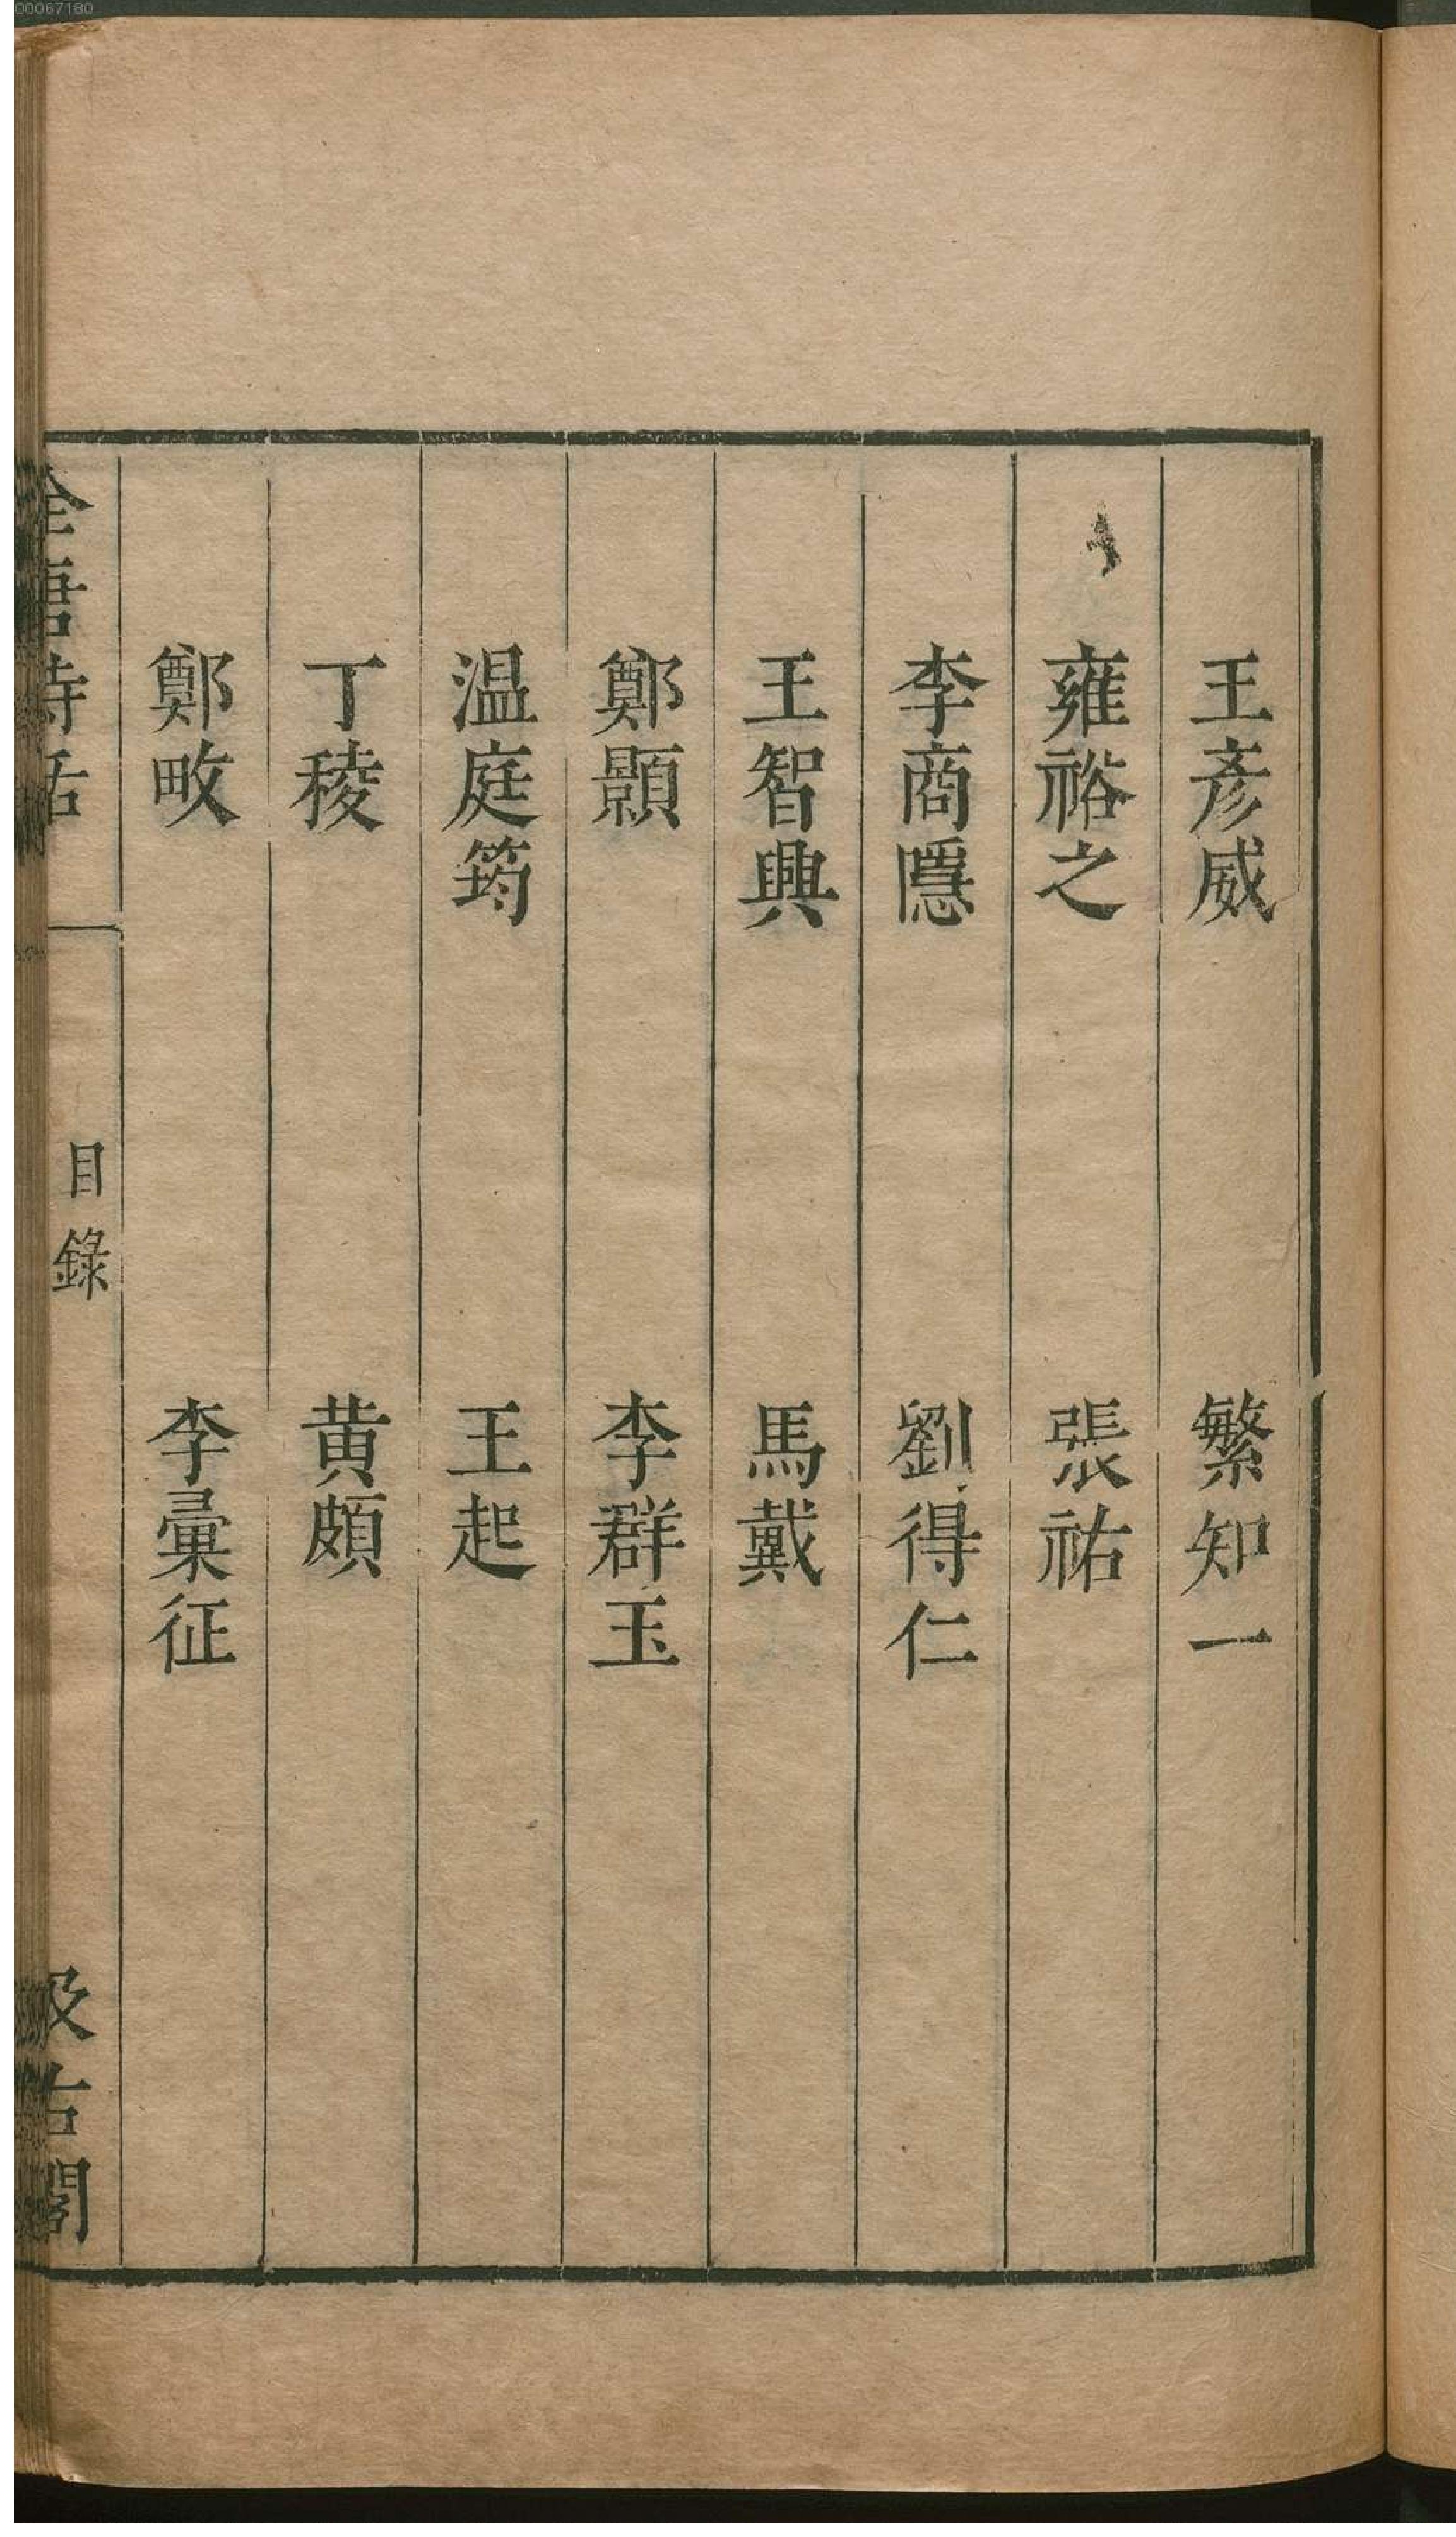 00067180
王彥威 繁知一
雍裕之 張祐
李商隱 劉得仁
王智興 馬戴
鄭顥 李群玉
温庭筠 王起
丁稜 黄頗
鄭畋 李彙征
全唐詩話 目錄 汲古閣